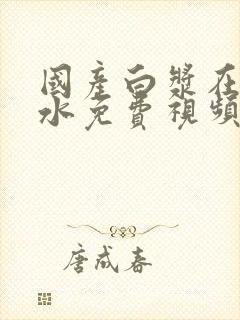 國產白漿在
水免費視頻
唐成春